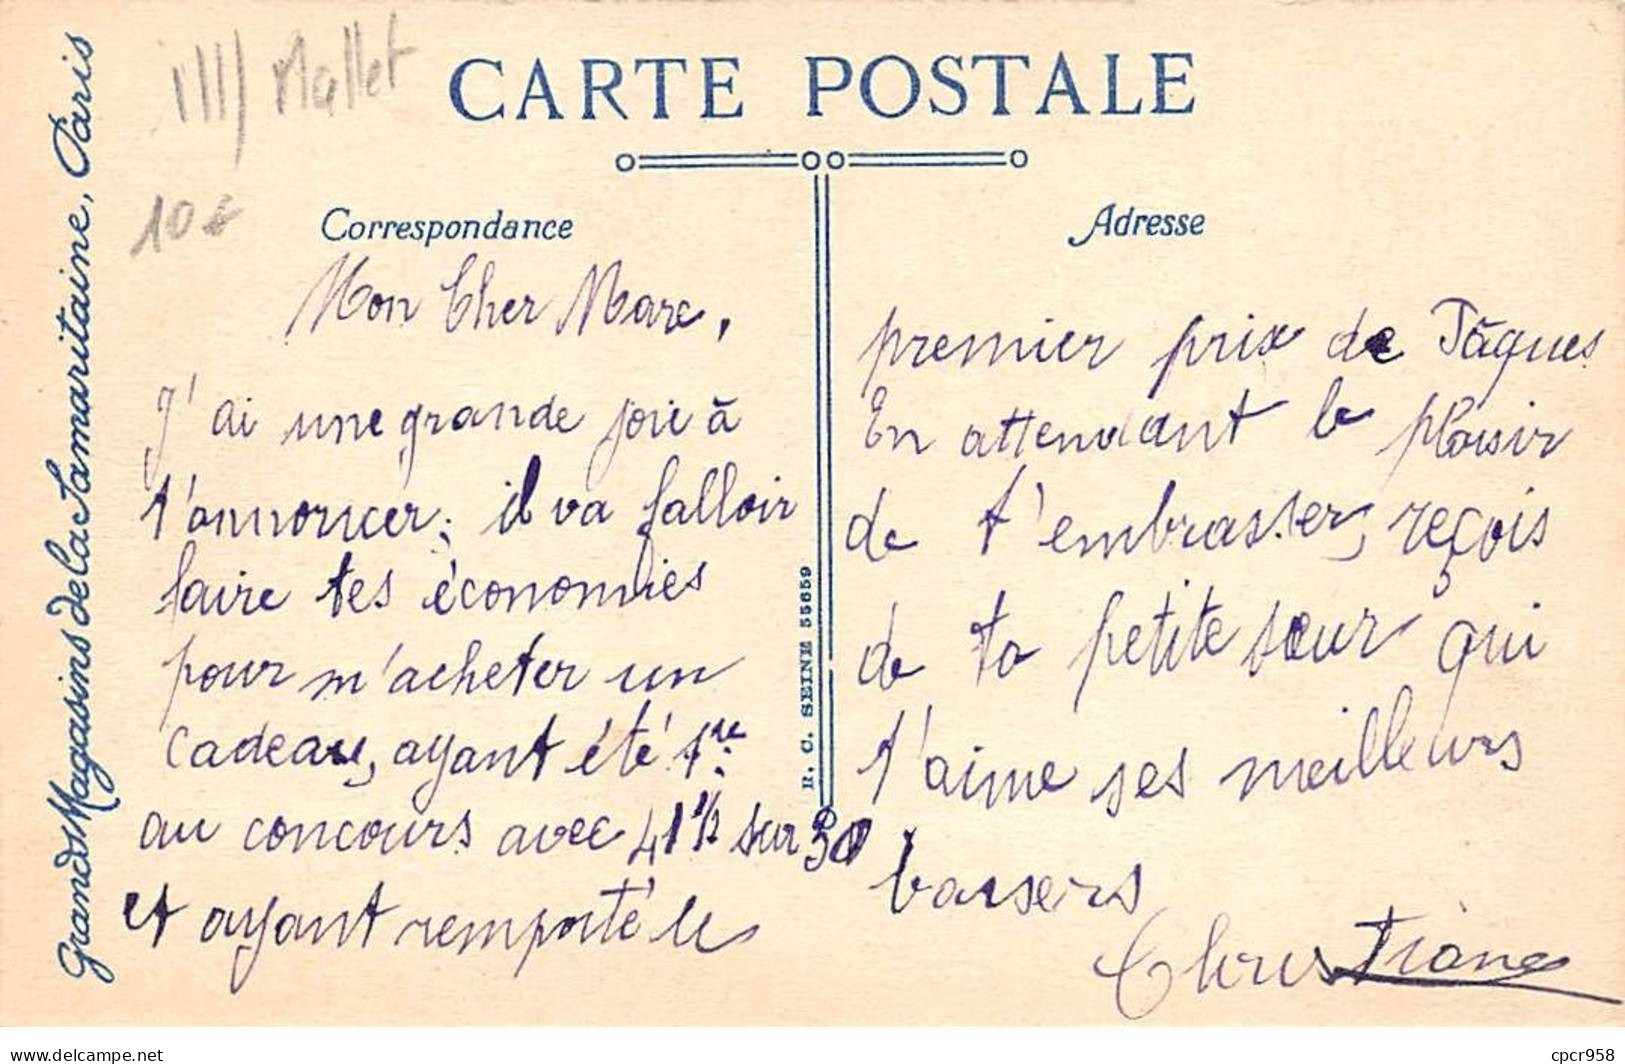 ill) Mallet
10€
CARTE POSTALE
Grands Magasins de la Samaritaine, Paris
Correspondance
Mon Cher Marc,
J'ai une grande joie à
t'annoncer; il va falloir
faire tes économies
pour m'acheter un
cadeau, ayant été 1re
au concours avec 41 1/2 sur 50
et ayant remporté le
R. C. SEINE 55659
Adresse
premier prix de Pâques
En attendant le plaisir
de t'embrasser, reçois
de ta petite sœur qui
t'aime ses meilleurs
baisers
Christiane
delcampe.net
cpcr958